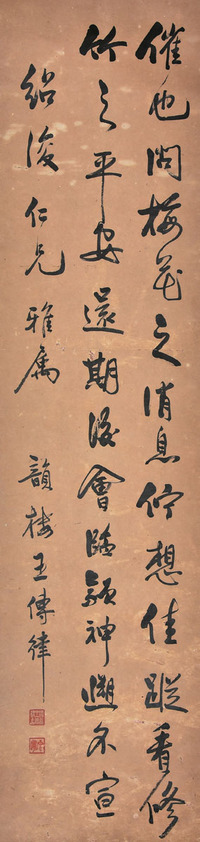 催也問梅花之消息佇想佳蹤看修
竹之平安還期後會臨穎神遡不宣
紹後仁兄雅屬
韻樓王傳律